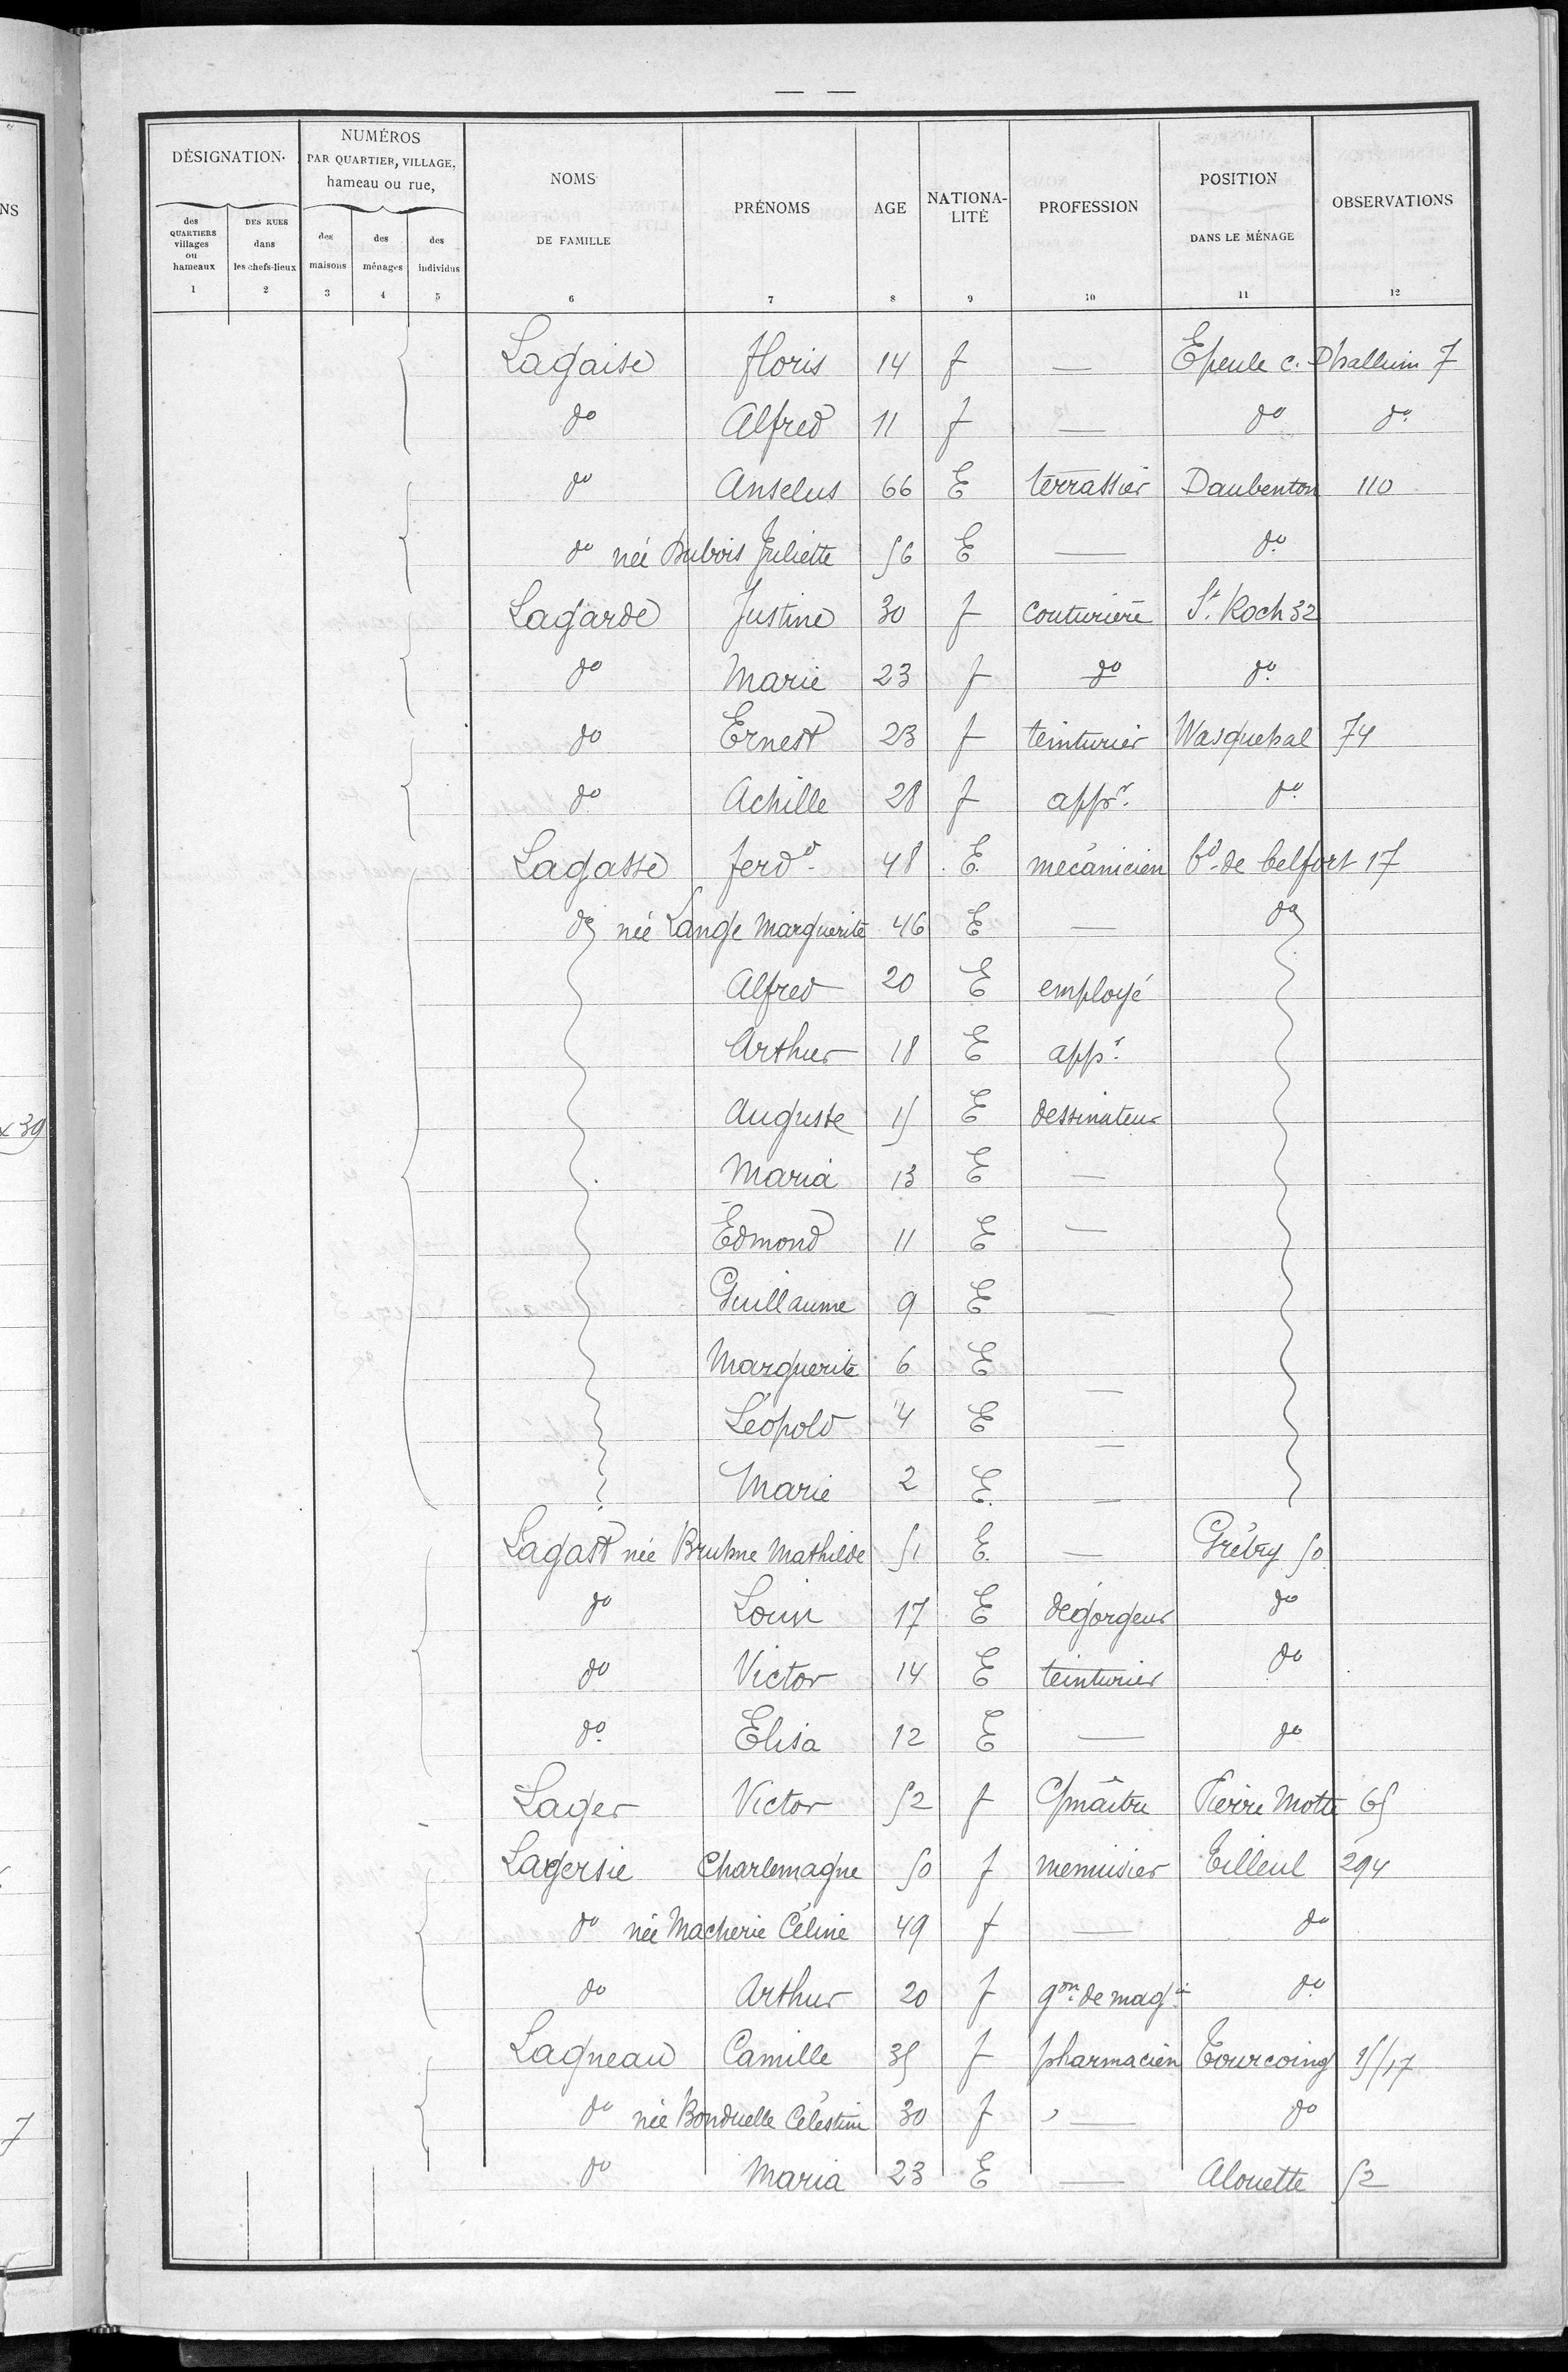 — —
DÉSIGNATION
NUMÉROS PAR QUARTIER, VILLAGE, hameau ou rue,
NOMS DE FAMILLE
PRÉNOMS
AGE
NATIONALITÉ
PROFESSION
POSITION DANS LE MÉNAGE
OBSERVATIONS
des QUARTIERS villages ou hameaux
DES RUES dans les chefs-lieux
des maisons
des ménages
des individus
1 2 3 4 5 6 7 8 9 10 11 12
Lagaise floris 14 f — Epeule c. Dhalluin 7
do Alfred 11 f — do do
do Anselus 66 E terrassier Daubenton 110
do née Dubois Juliette 56 E — do
Lagarde Justine 30 f couturière St. Roch 32
do Marie 23 f do do
do Ernest 23 f teinturier Wasquehal 74
do Achille 28 f appr. do
Lagasse ferd. 48 E. mécanicien bd de belfort 17
do née Lange Marguerite 46 E — do
Alfred 20 E employé
Arthur 18 E appr.
Auguste 15 E dessinateur
Maria 13 E —
Edmond 11 E —
Guillaume 9 E —
Marguerite 6 E —
Léopold 4 E —
Marie 2 E. —
Lagast née Bruhne Mathilde 51 E. — Grétry 50
do Louis 17 E dégorgeur do
do Victor 14 E teinturier do
do Elisa 12 E — do
Lager Victor 52 f Cmaître Pierre Motte 65
Lagersie Charlemagne 50 f menuisier Tilleul 294
do née Macherie Céline 49 f — do
do Arthur 20 f gon de magin do
Lagneau Camille 35 f pharmacien Tourcoing 15/17
do née Bonduelle Célestine 30 f — do
do Maria 23 E — Alouette 52